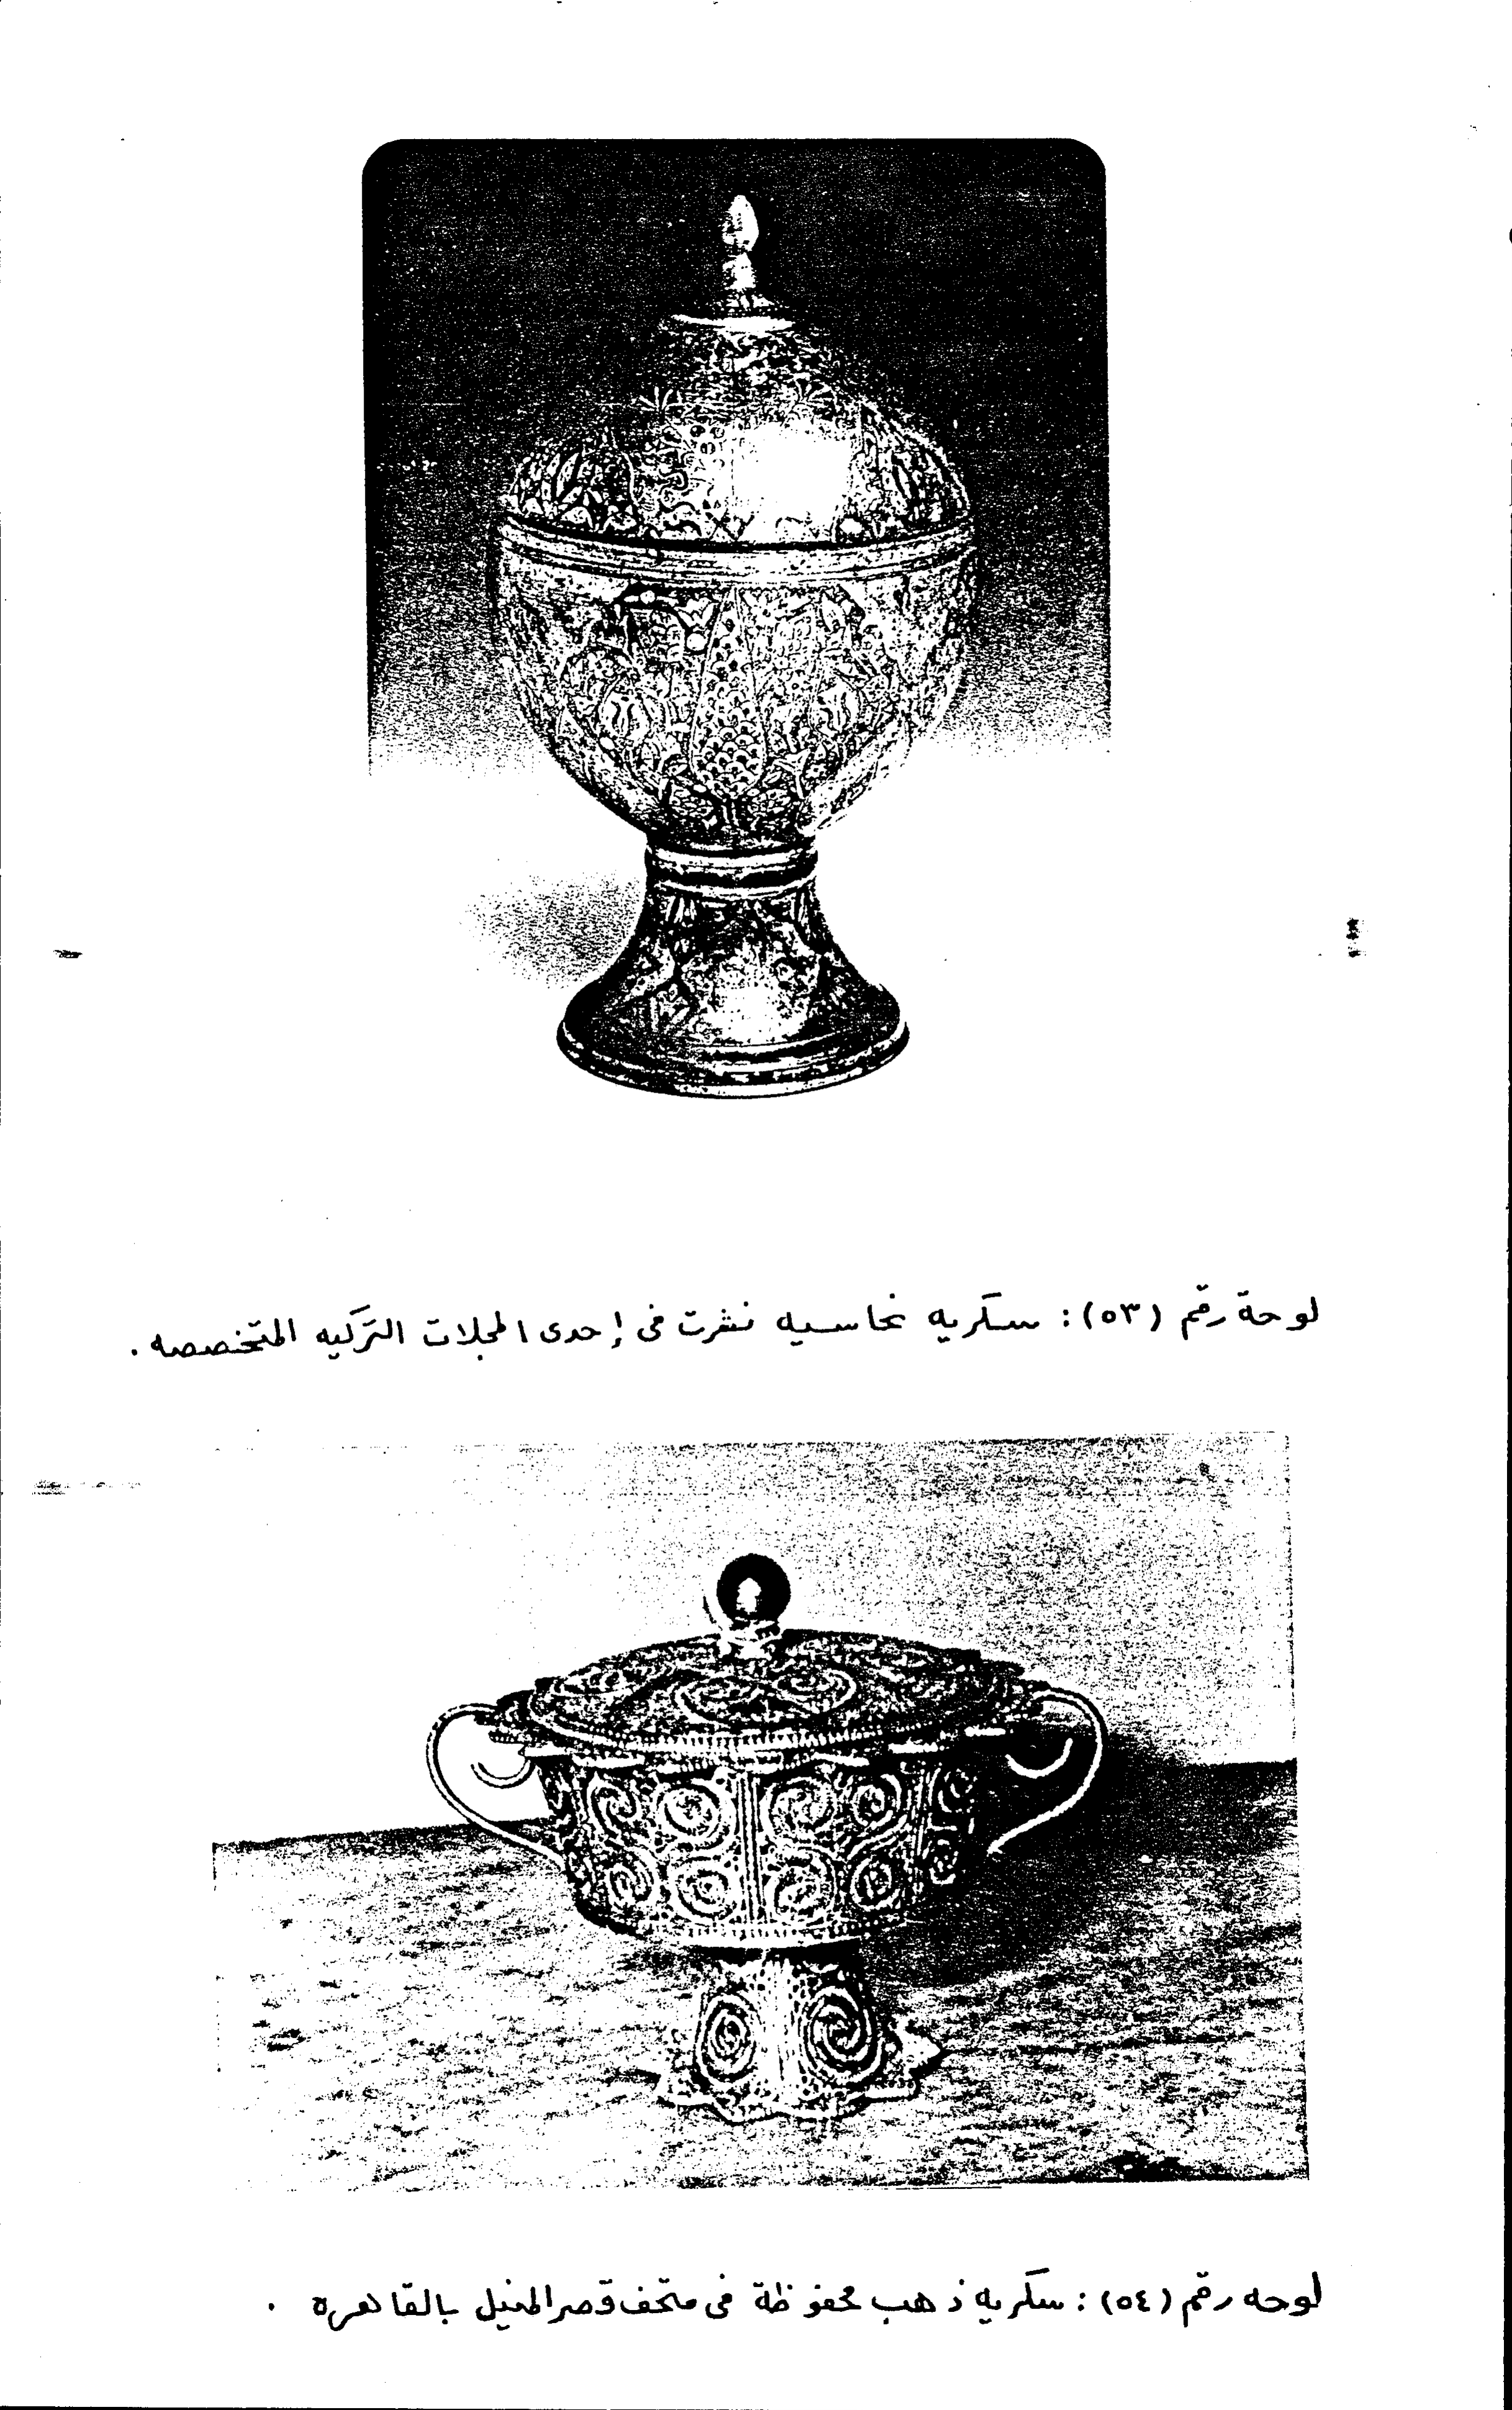 لوحة رقم (٥٣): سكريه نحاسيه نشرت فى إحدى المجلات التركيه المتخصصه .
لوحه رقم (٥٤): سكريه ذهب محفوظة فى متحف قصر المنيل بالقاهره .